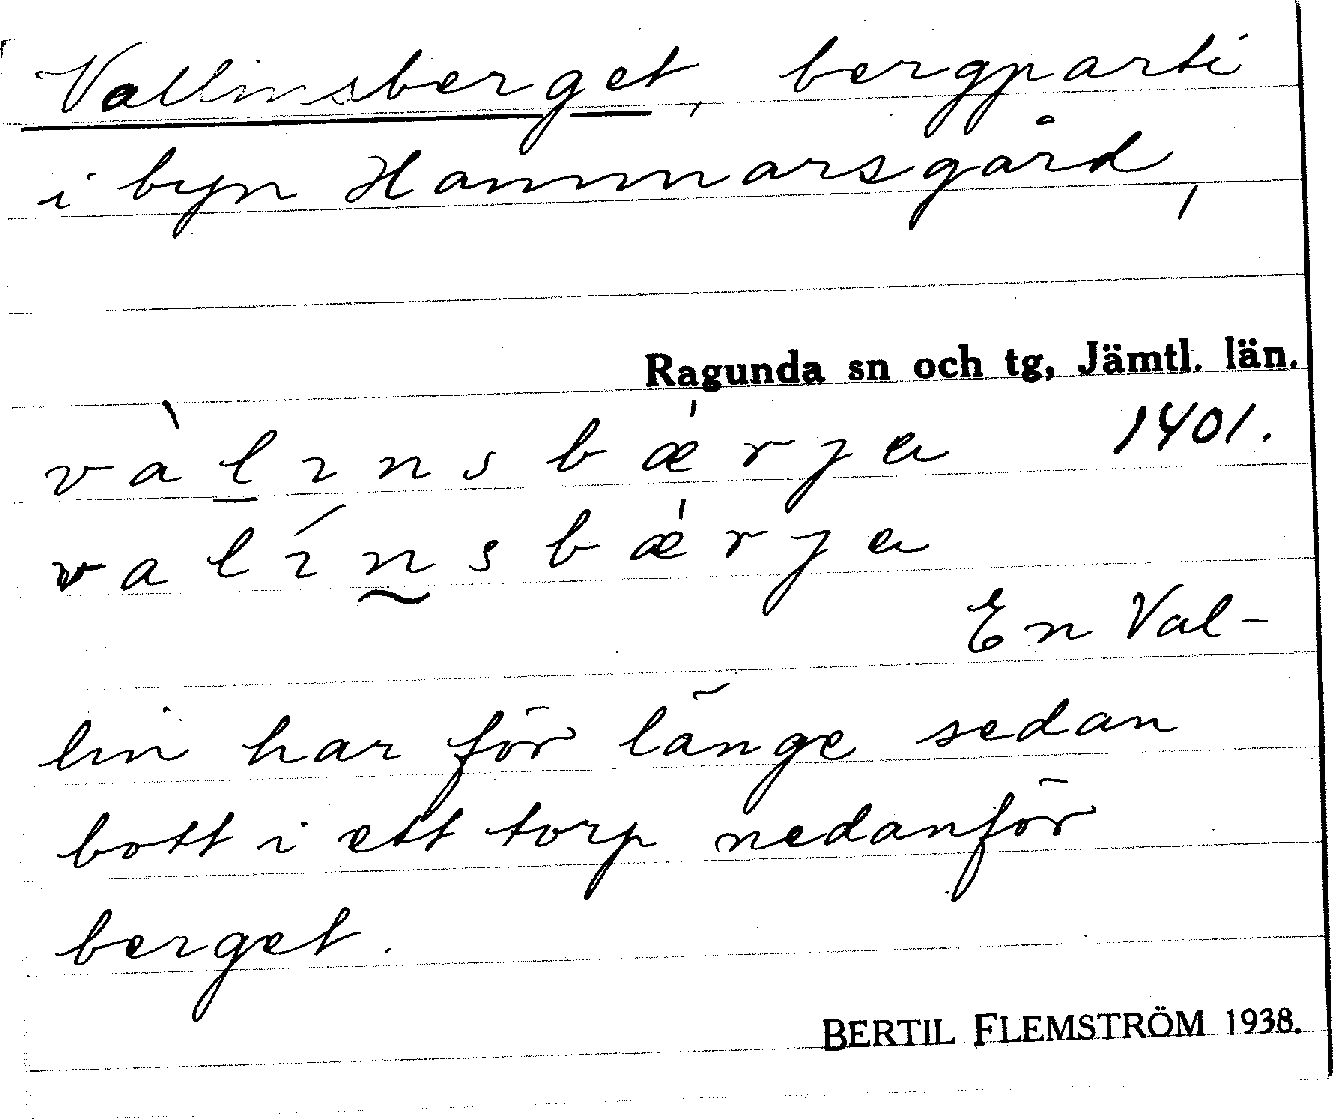 Vallinsberget, bergparti
i byn Hammarsgård,
Ragunda sn och tg, Jämtl. län.
vàlınsbæ̍rȷa 1401.
valı́nsbæ̍rȷa
En Val-
lin har för länge sedan
bott i ett torp nedanför
berget.
BERTIL FLEMSTRÖM 1938.